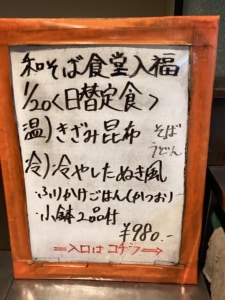 和そば食堂入福
1/20<日替定食>
温)きざみ昆布 そば
うどん
冷)冷やしたぬき風
・ふりかけごはん(かつお)
・小鉢2品付
¥980.-
⇒入口はコチラ⇒